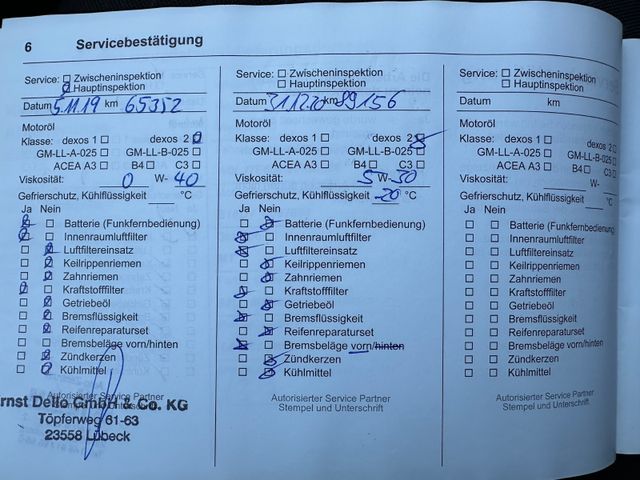 6 Servicebestätigung
Service: Zwischeninspektion
Hauptinspektion
Datum 5.11.19 km 65352
Motoröl
Klasse: dexos 1 dexos 2
GM-LL-A-025 GM-LL-B-025
ACEA A3 B4 C3
Viskosität: 0 W- 40
Gefrierschutz, Kühlflüssigkeit °C
Ja Nein
Batterie (Funkfernbedienung)
Innenraumluftfilter
Luftfiltereinsatz
Keilrippenriemen
Zahnriemen
Kraftstofffilter
Getriebeöl
Bremsflüssigkeit
Reifenreparaturset
Bremsbeläge vorn/hinten
Zündkerzen
Kühlmittel
Autorisierter Service Partner
rnst Dello GmbH & Co. KG
Töpferweg 61-63
23558 Lübeck
Service: Zwischeninspektion
Hauptinspektion
Datum 31.12.20 km 89156
Motoröl
Klasse: dexos 1 dexos 2
GM-LL-A-025 GM-LL-B-025
ACEA A3 B4 C3
Viskosität: 5 W- 30
Gefrierschutz, Kühlflüssigkeit -20 °C
Ja Nein
Batterie (Funkfernbedienung)
Innenraumluftfilter
Luftfiltereinsatz
Keilrippenriemen
Zahnriemen
Kraftstofffilter
Getriebeöl
Bremsflüssigkeit
Reifenreparaturset
Bremsbeläge vorn/hinten
Zündkerzen
Kühlmittel
Autorisierter Service Partner
Stempel und Unterschrift
Service: Zwischeninspektion
Hauptinspektion
Datum km
Motoröl
Klasse: dexos 1 dexos 2
GM-LL-A-025 GM-LL-B-025
ACEA A3 B4 C3
Viskosität: W-
Gefrierschutz, Kühlflüssigkeit °C
Ja Nein
Batterie (Funkfernbedienung
Innenraumluftfilter
Luftfiltereinsatz
Keilrippenriemen
Zahnriemen
Kraftstofffilter
Getriebeöl
Bremsflüssigkeit
Reifenreparaturset
Bremsbeläge vorn/hinten
Zündkerzen
Kühlmittel
Autorisierter Service Partner
Stempel und Unterschrift